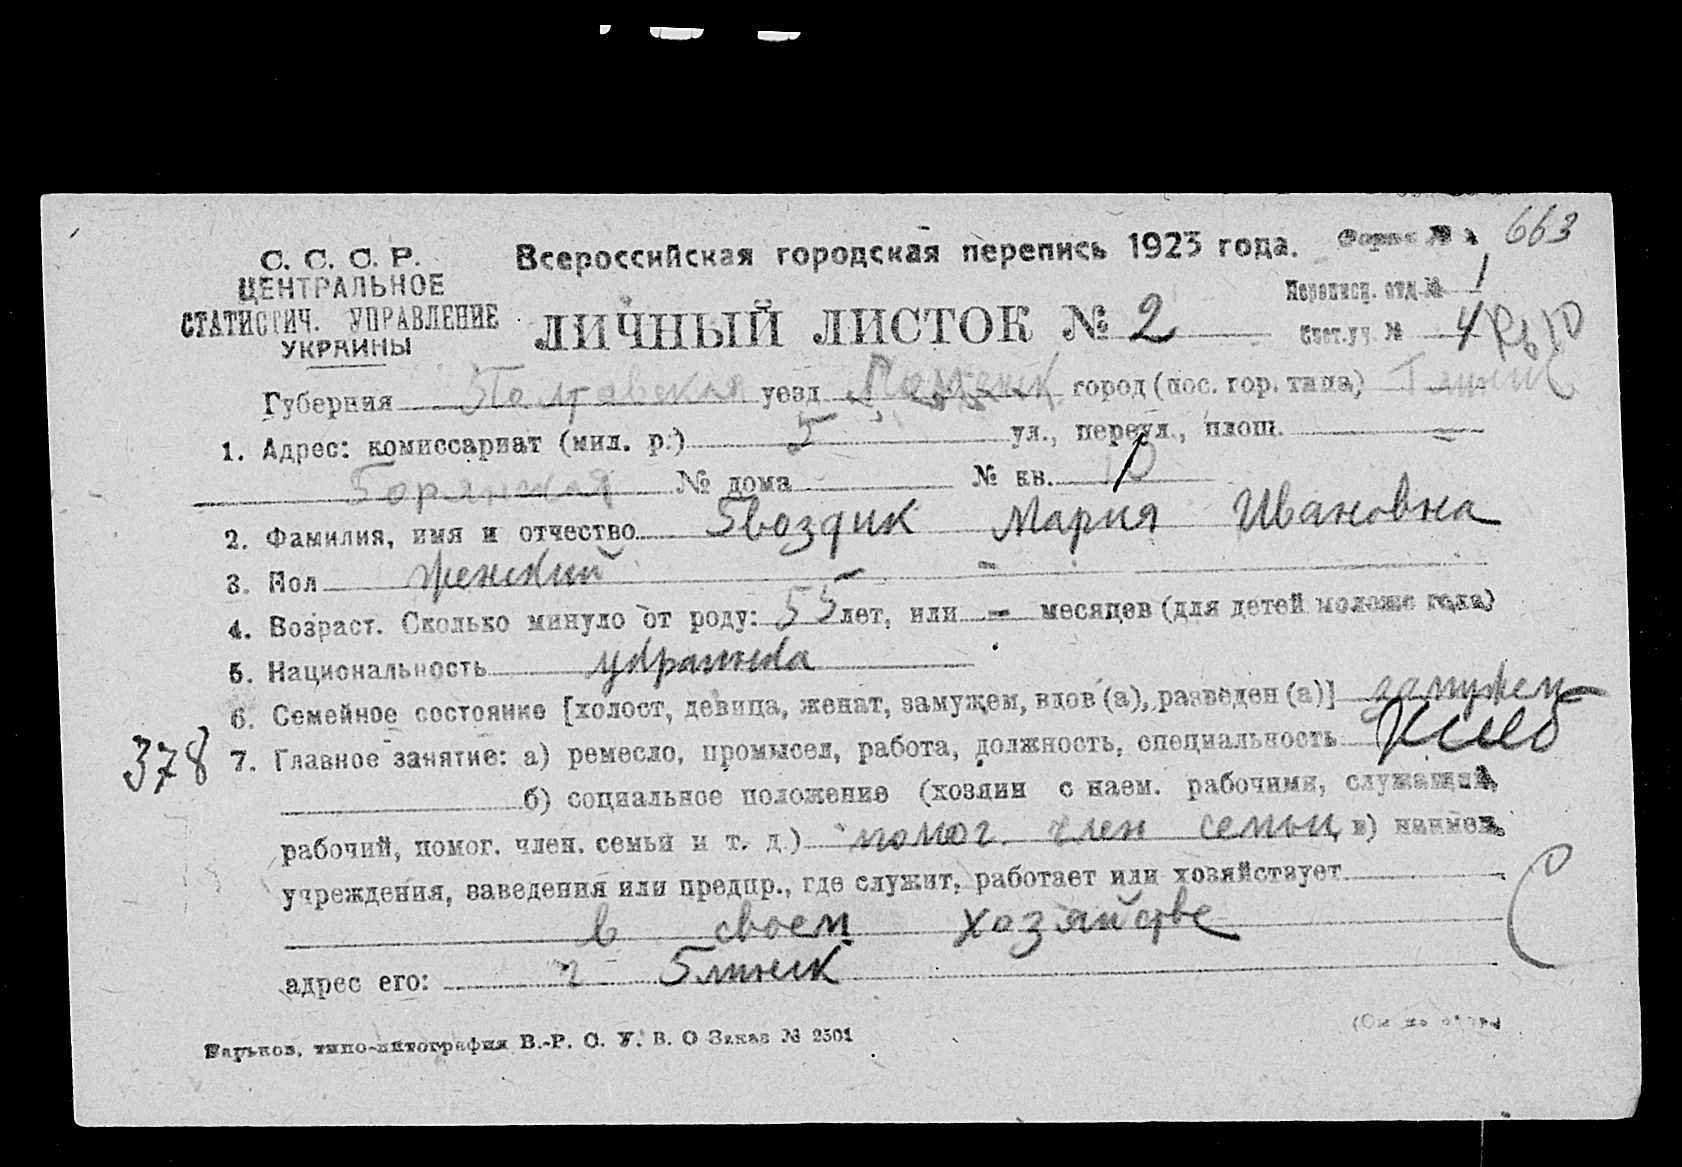 663
С. С. С. Р.
ЦЕНТРАЛЬНОЕ
СТАТИСТИЧ. УПРАВЛЕНИЕ
УКРАИНЫ
Всероссийская городская перепись 1923 года.
Форма №
Переписн. отд. № 1
ЛИЧНЫЙ ЛИСТОК № 2
Сч­ет.уч. № 4
Губерния Полтавская уезд город (пос. гор. типа)
1. Адрес: комиссариат (мил. р.) 5 ул., переул., площ. –
№ дома № кв. 10
2. Фамилия, имя и отчество Гвоздик Мария Ивановна
3. Пол женский –
4. Возраст. Сколько минуло от роду: 55 лет, или – месяцев (для детей моложе года)
5. Национальность украинка
6. Семейное состояние [холост, девица, женат, замужем, вдов (а), разведен (а)] замужем
378
7. Главное занятие: а) ремесло, промысел, работа, должность, специальность
б) социальное положение (хозяин с наем. рабочими, служащий,
рабочий, помог. член. семьи и т. д.) помог. член семьи в) наимен.
учреждения, заведения или предпр., где служит, работает или хозяйствует
в своем хозяйстве
адрес его: г Глинск
Харьков, типо-литография В.-Р. С. У. В. О Заказ № 2501